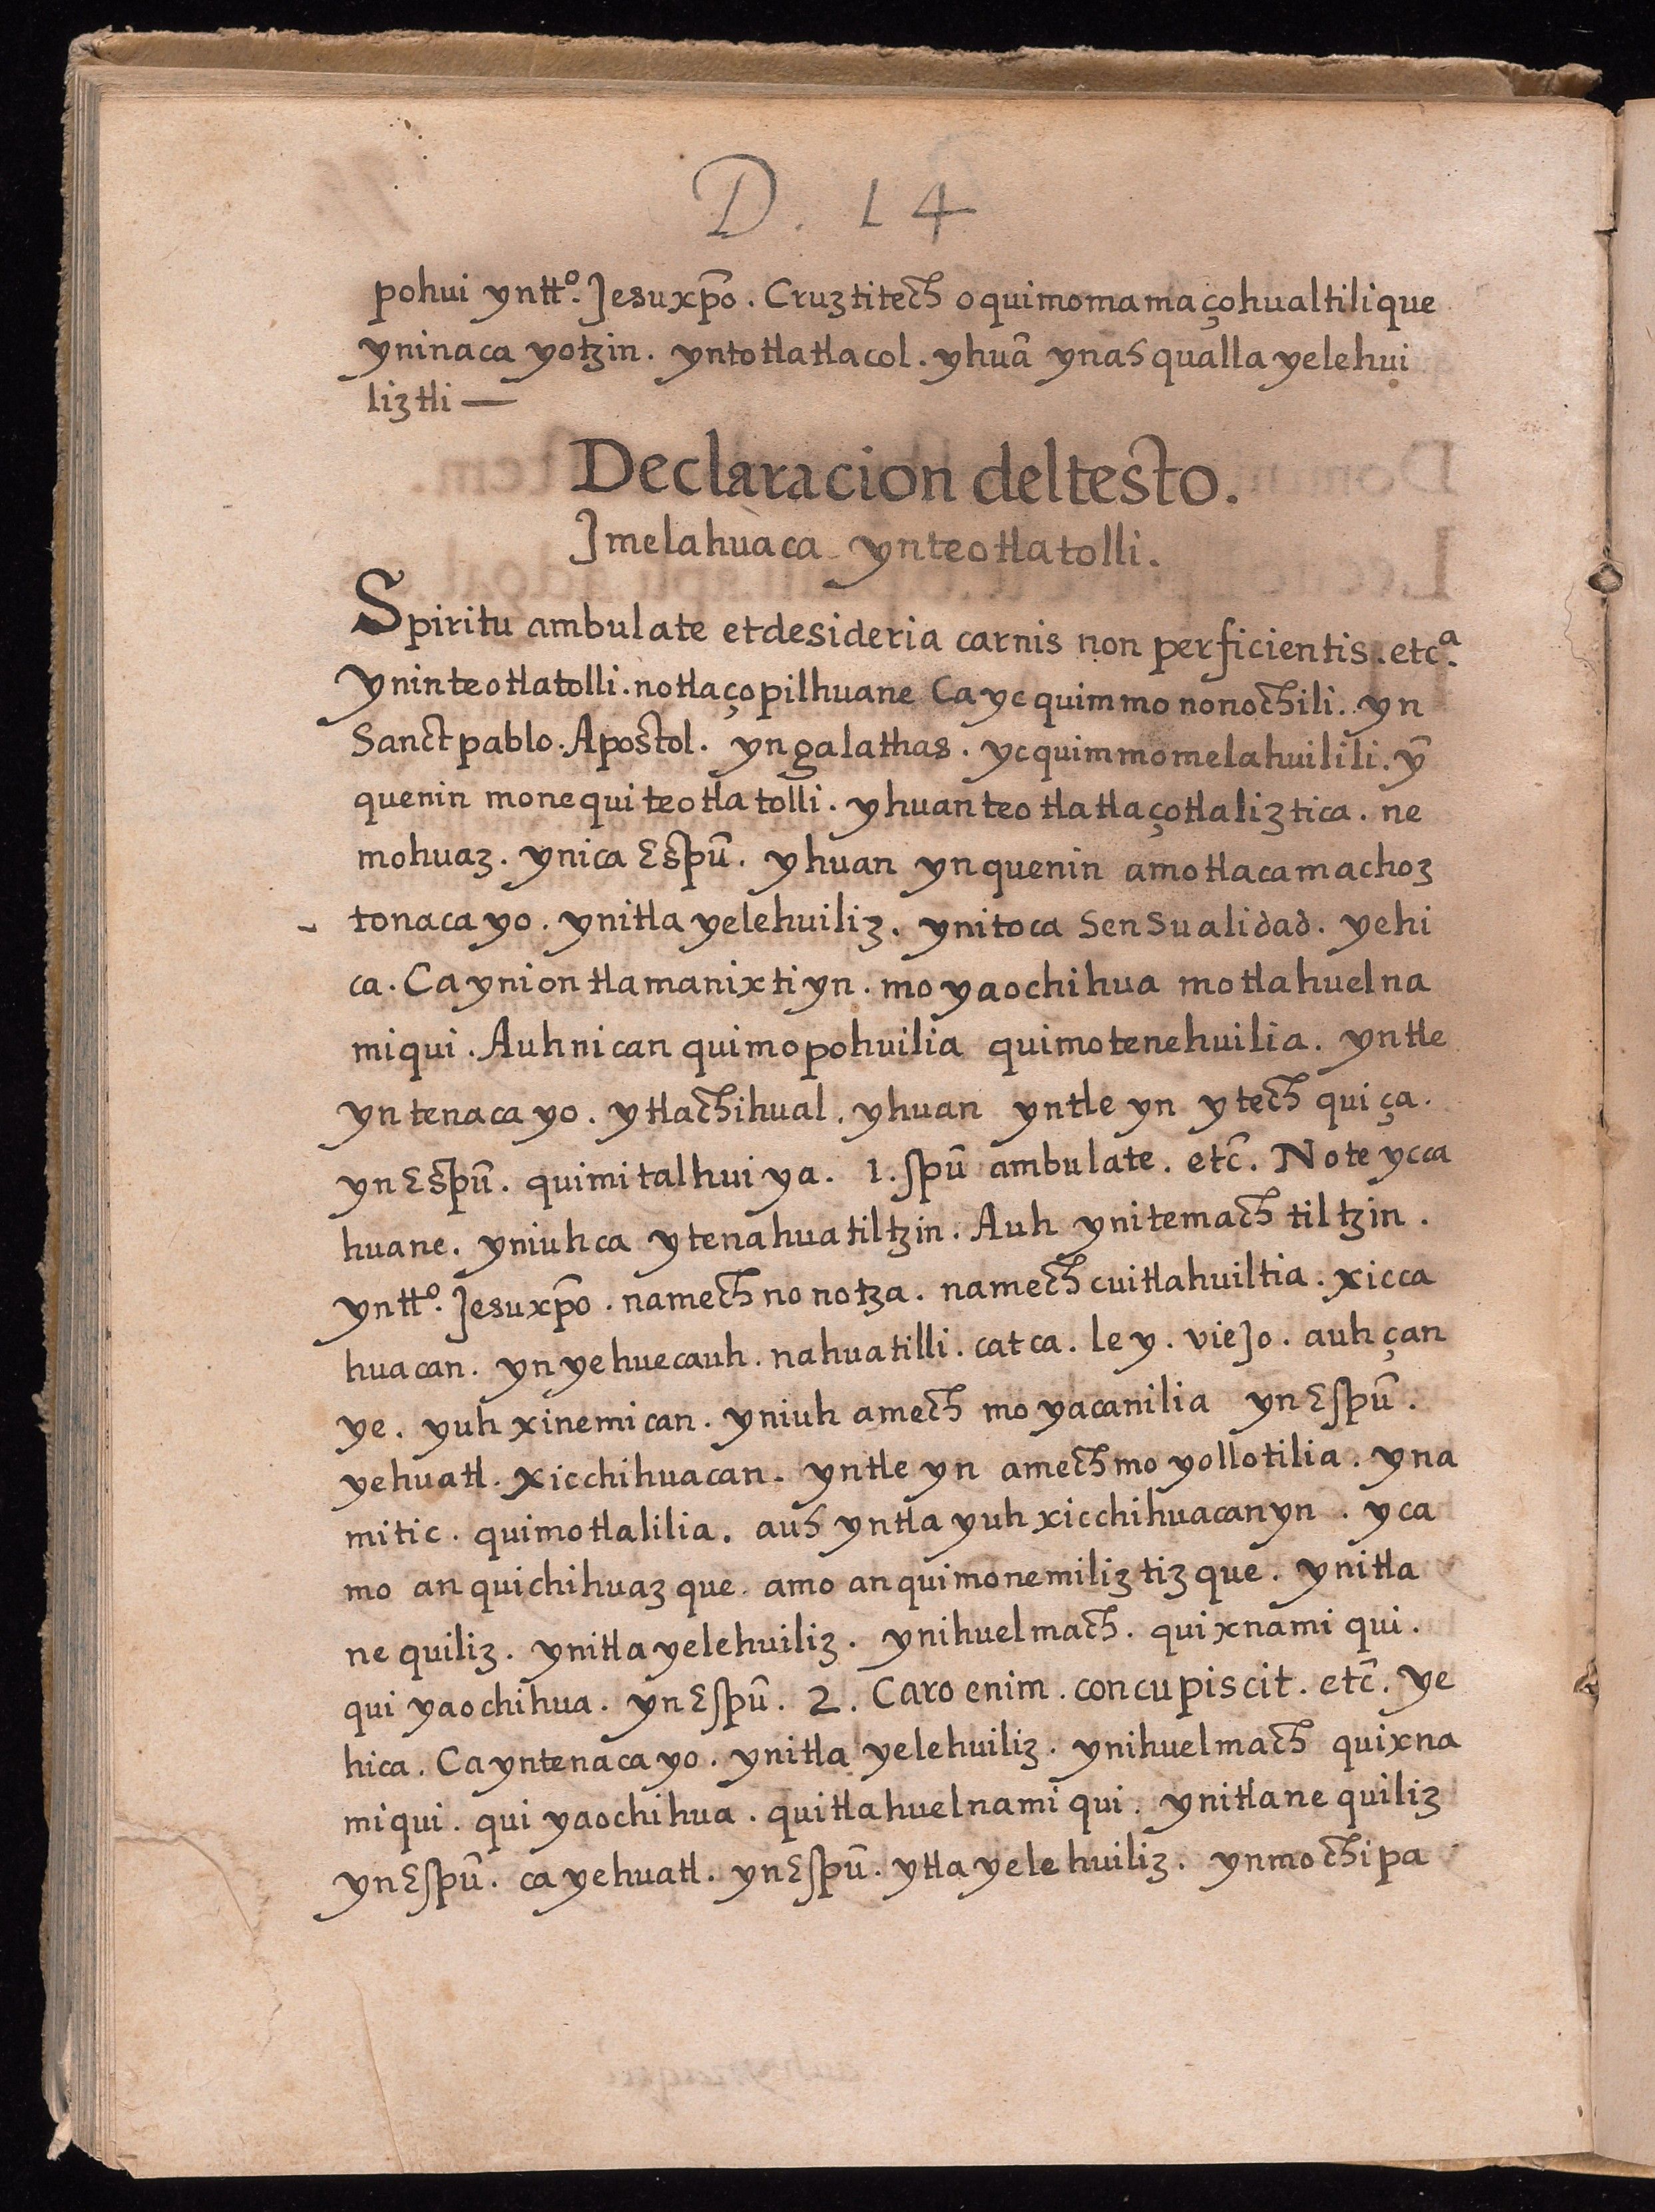 D. 14
pohui yntt.º Jesuxp̄o. Cruztitech oquimomamaçohualtilique
yninaca yotzin. yntotlatlacol. yhuā ynahqualla yelehui
liztli —
Declaracion deltesto.
Jmelahuaca ynteotlatolli.
Spiritu ambulate etdesideria carnis non perficientis. etc.ª
Yninteotlatolli. notlaçopilhuane Ca yc quimmo nonochili. yn
Sanct pablo. Apostol. yngalathas. ycquimmomelahuilili. ȳ
quenin monequi teotlatolli. yhuan teotlatlaçotlaliztica. ne
mohuaz. ynica Espū. yhuan ynquenin amotlacamachoz
tonacayo. ynitlayelehuiliz. ynitoca Sensualidad. yehi
ca. Ca yniontlamanixtiyn. moyaochihua motlahuelna
miqui. Auhnican quimopohuilia quimotenehuilia. yntle
yn tenacayo. ytlachihual. yhuan yntle yn ytech quiça.
yn Espū. quimitalhuiya. 1. spū ambulate. etc̄. Noteycca
huane. yniuhca ytenahuatiltzin. Auh ynitemachtiltzin.
yntt.º Jesuxp̄o. namechnonotza. namechcuitlahuiltia. xicca
huacan. yn yehuecauh. nahuatilli. catca. ley. viejo. auh çan
ye. yuh xinemican. yniuh amech moyacanilia yn Espū.
yehuatl. xicchihuacan. yntle yn amechmoyollotilia. yna
mitic. quimotlalilia. auh yntla yuh xicchihuacanyn. yca
mo anquichihuazque. amo anquimonemiliztizque. ynitla
nequiliz. ynitlayelehuiliz. ynihuelmach. quixnamiqui.
quiyaochihua. yn Espū. 2. Caro enim. concupiscit. etc̄. Ye
hica. Ca yntenacayo. ynitlayelehuiliz. ynihuelmach quixna
miqui. quiyaochihua. quitlahuelnamiqui. ynitlanequiliz
yn Espū. ca yehuatl. yn Espū. ytlayelehuiliz. ynmochipa